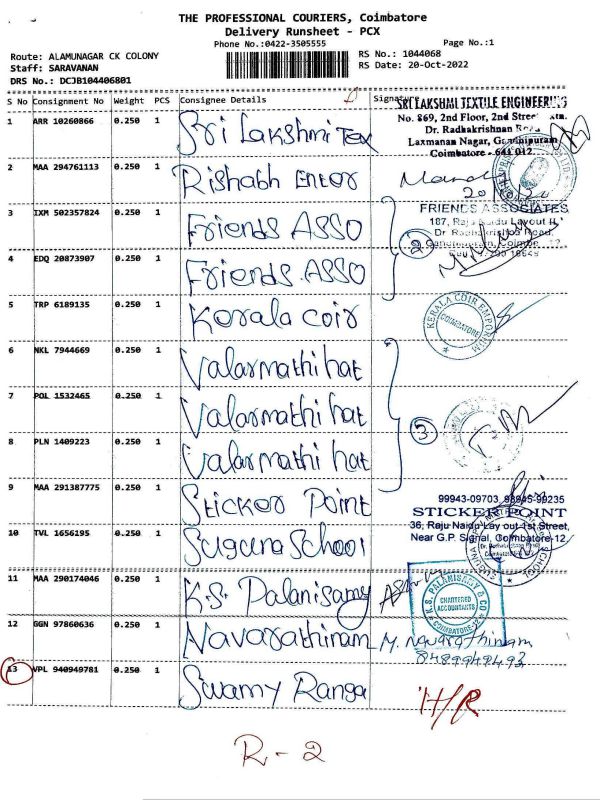 THE PROFESSIONAL COURIERS, Coimbatore
Delivery Runsheet - PCX
Phone No.:0422-3505555
Page No.:1
Route: ALAMUNAGAR CK COLONY
RS No.: 1044068
Staff: SARAVANAN
RS Date: 20-Oct-2022
DRS No.: DCJB104406801
S No Consignment No Weight PCS Consignee Details
1 ARR 10260866 0.250 1 Sri Lakshmi Tex
SRI LAKSHMI TEXTILE ENGINEERING
No. 869, 2nd Floor, 2nd Street
Dr. Radhakrishnan Road
Laxmanan Nagar, Ganapathy
Coimbatore - 641 012
2 MAA 294761113 0.250 1 Rishabh Enter
3 IXM 502357824 0.250 1 Friends ASSO
FRIENDS ASSOCIATES
187, Raju Naidu Layout
Dr Radhakrishna Road,
4 EDQ 20873907 0.250 1 Friends.ASSO
2
5 TRP 6189135 0.250 1 Kerala coir
KERALA COIR EMPORIUM
COIMBATORE
6 NKL 7944669 0.250 1 Valarmathi hat
7 POL 1532465 0.250 1 Valarmathi hat
3
8 PLN 1409223 0.250 1 Valarmathi hat
9 MAA 291387775 0.250 1 Sticker Point
99943-09703, 98945-99235
STICKER POINT
36, Raju Naidu Lay out 1st Street,
Near G.P. Signal, Coimbatore-12
10 TVL 1656195 0.250 1 Suguna School
11 MAA 290174046 0.250 1 K.S. Palanisamy
K.S. PALANISAMY & CO
CHARTERED
ACCOUNTANTS
COIMBATORE-12
12 GGN 97860636 0.250 1 Navarathinam
M. Navarathinam
8489949493
13 VPL 940949781 0.250 1 Swamy Ranga
H/R
R-2